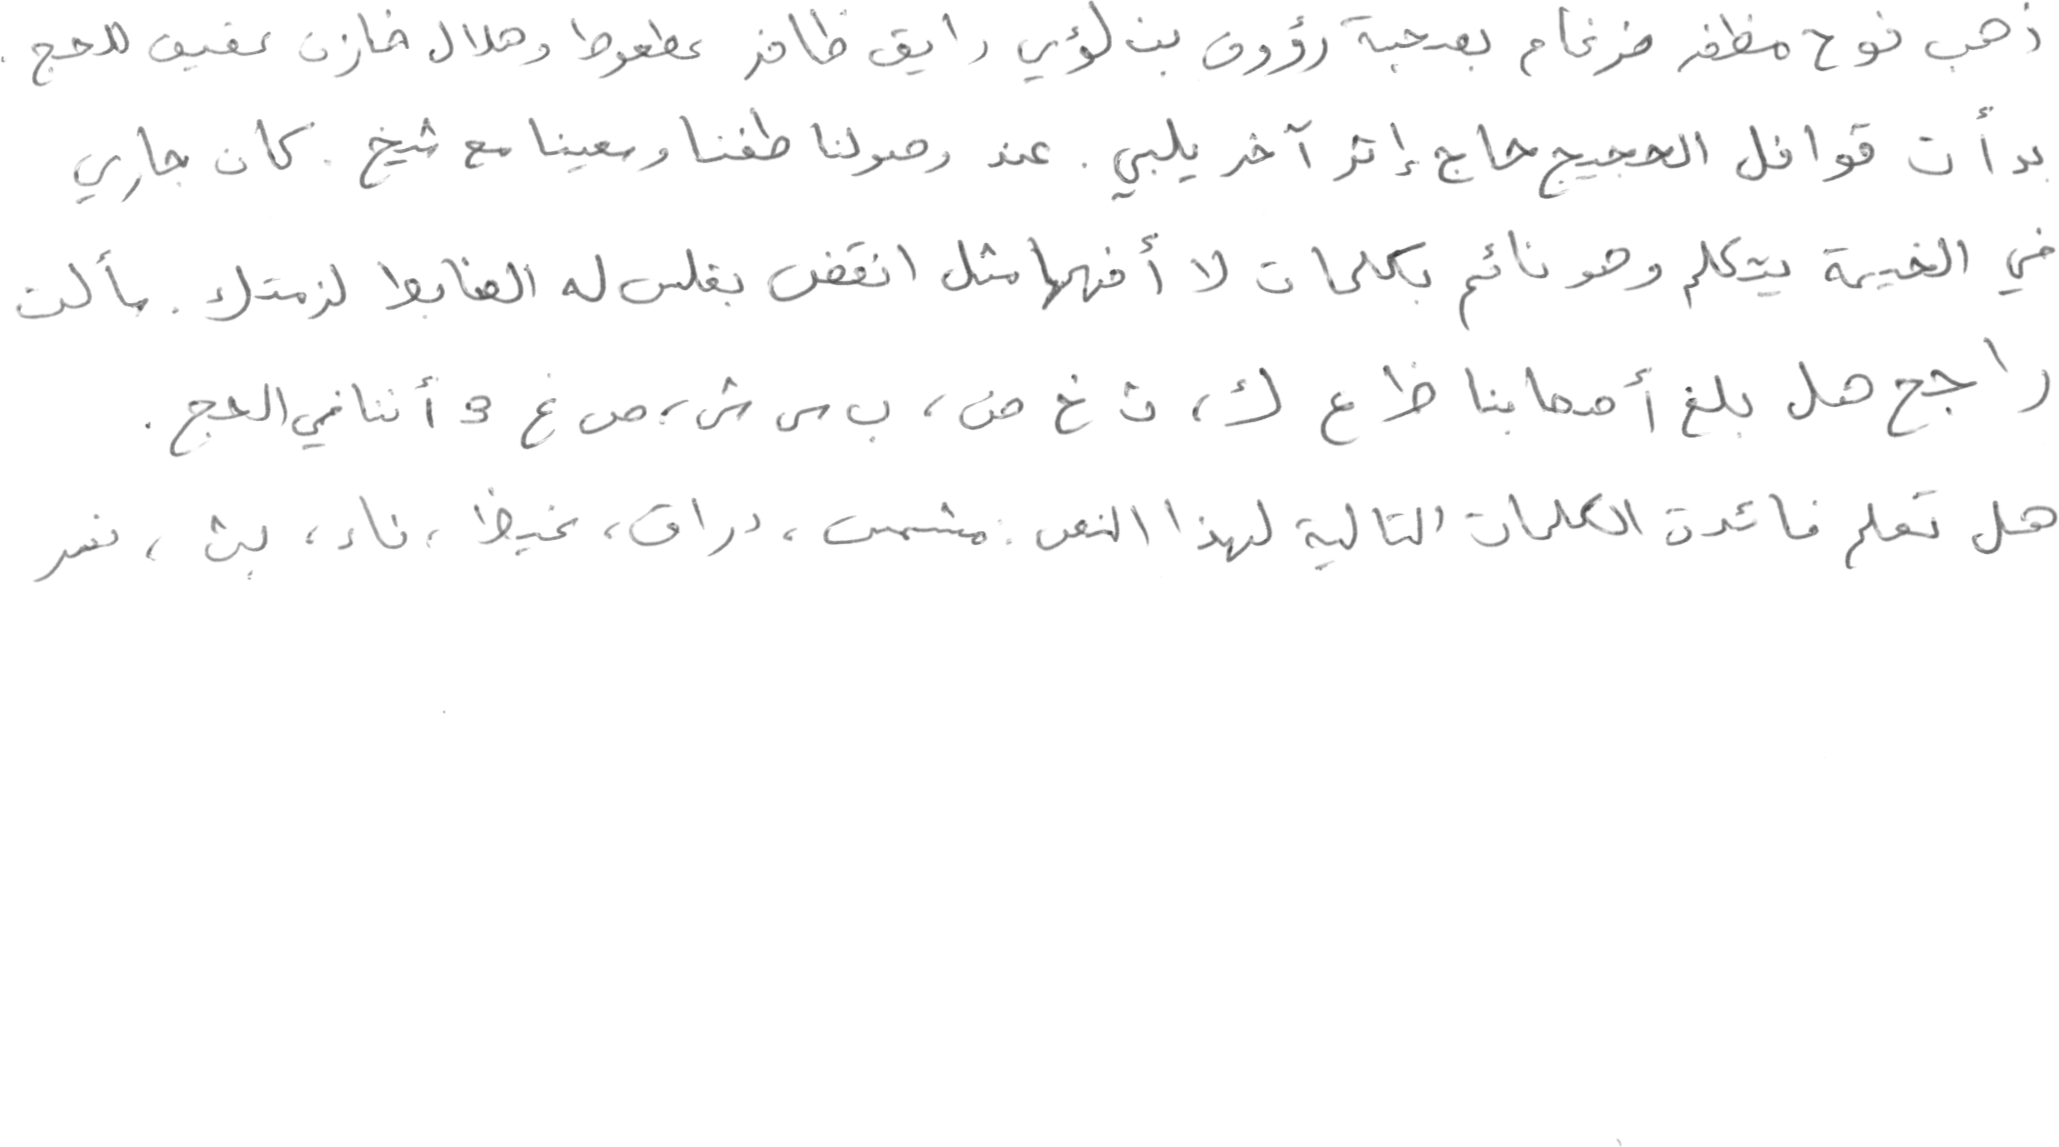 ذهب نوح مظفر ضرغام بصحبة رؤوف بن لؤي رايق ظافر عطعوط وهلال خازن عفيف للحج .
بدأت قوافل الحجيج حاج إثر آخر يلبي . عند وصولنا طفنا وسعينا مع شيخ . كان جاري
في الخيمة يتكلم وهو نائم بكلمات لا أفهمها مثل انقض بغلس له الضابط لزمتك . سألت
راجح هل بلغ أصحابنا ظ ع ك ، ث خ ض ، ب س ش ، ص غ و أننا في الحج .
هل تعلم فائدة الكلمات التالية لهذا النص : مشمس ، دراق ، غيظ ، ناء ، بث ، نمر